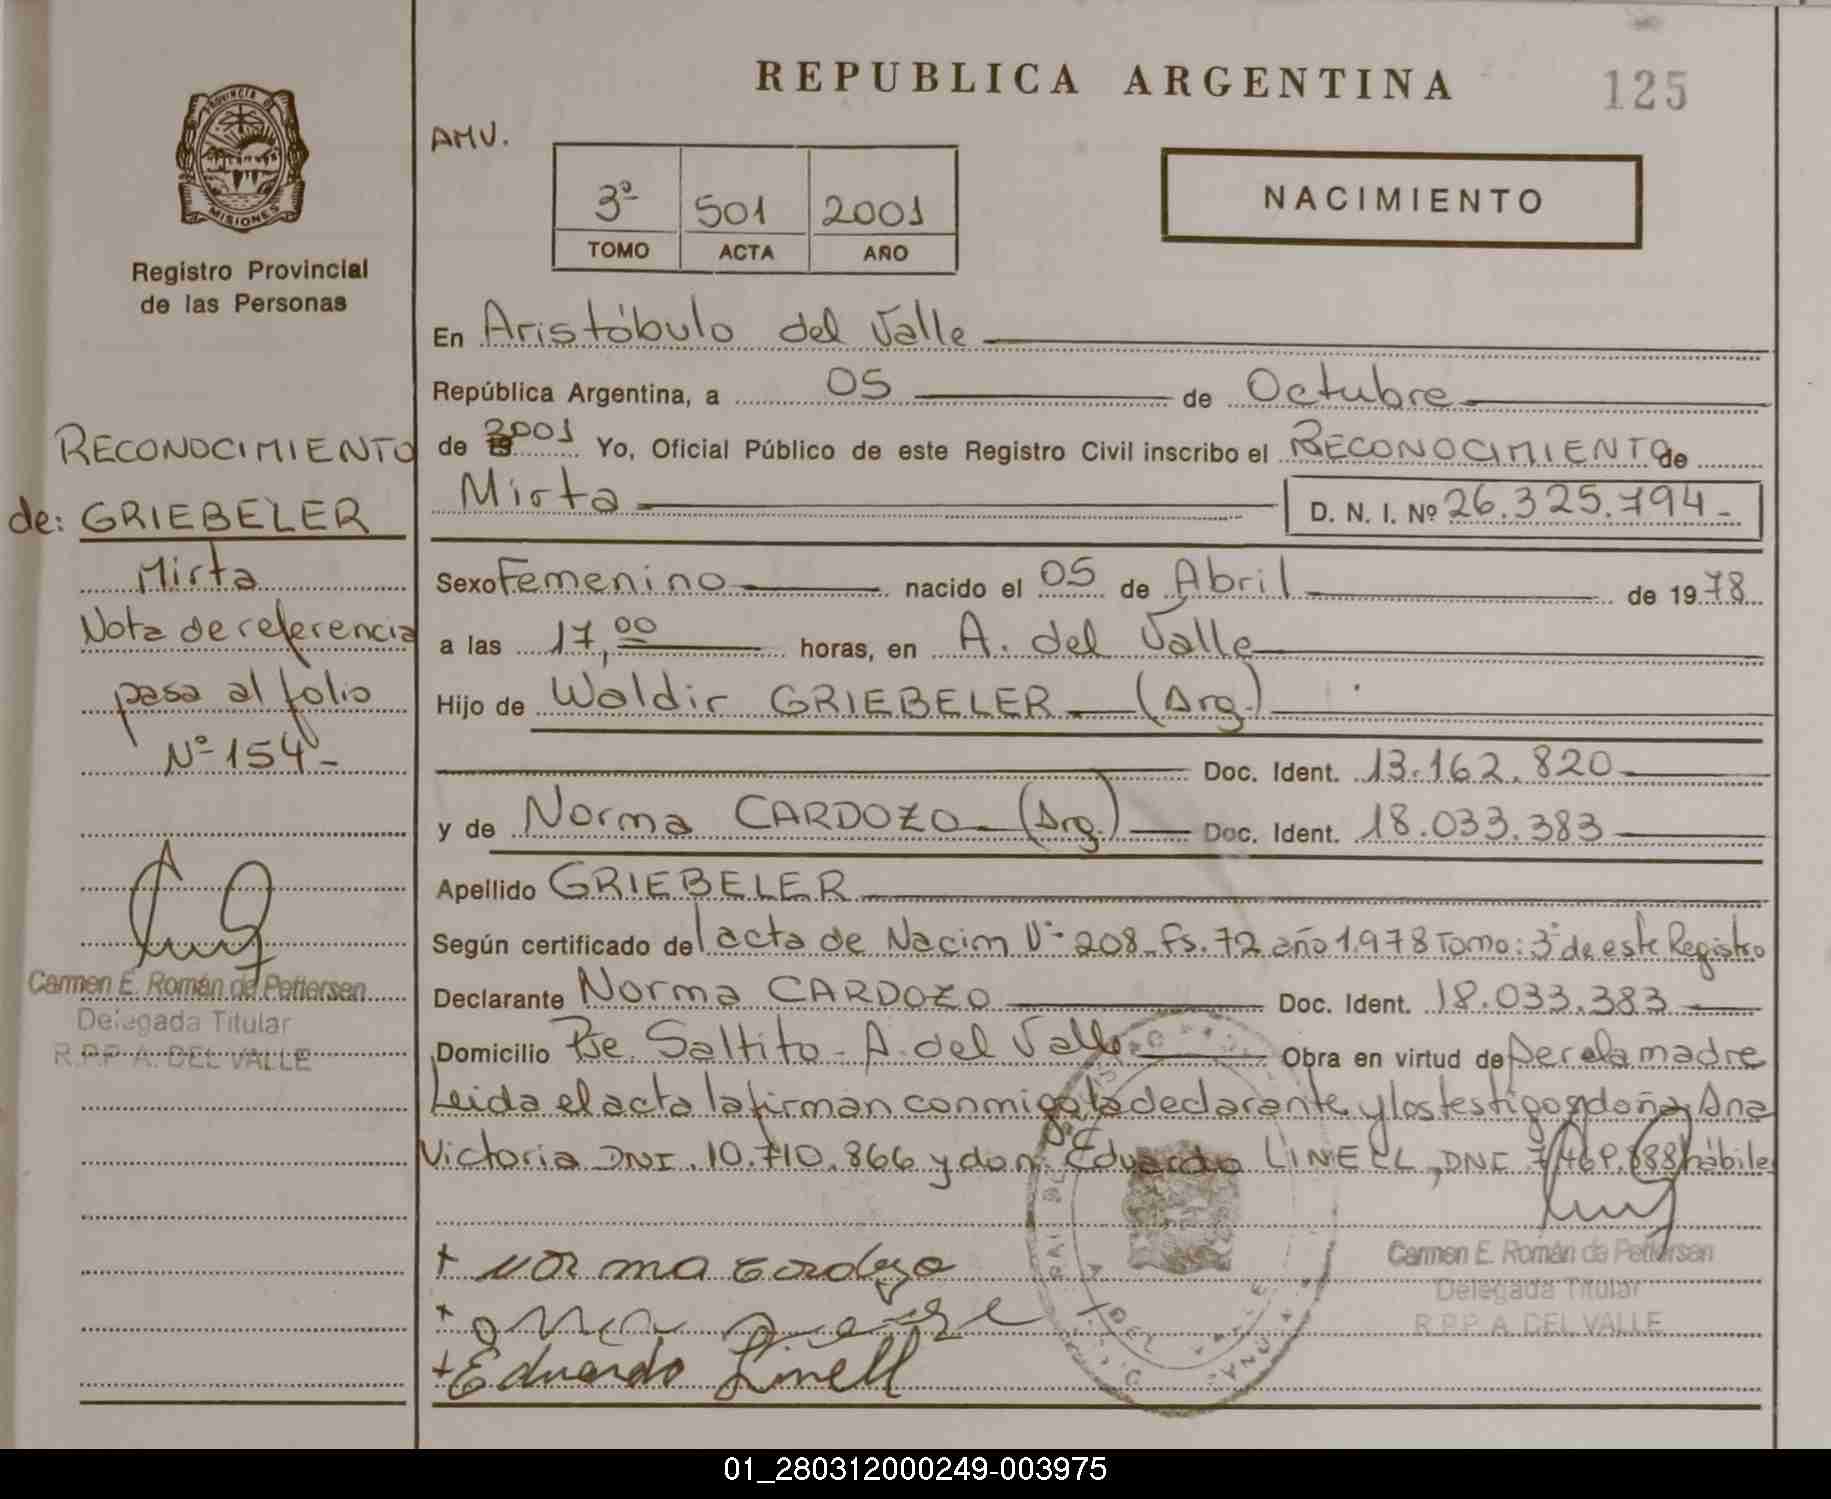 REPUBLICA ARGENTINA
125
PROVINCIA DE
MISIONES
Registro Provincial
de las Personas
AMV.
3º 501 2001
TOMO ACTA AÑO
NACIMIENTO
En Aristóbulo del Valle
República Argentina, a 05 de Octubre
de 2001 Yo, Oficial Público de este Registro Civil inscribo el RECONOCIMIENTO de
Mirta D. N. I. Nº 26.325.794-
Sexo Femenino nacido el 05 de Abril de 1978
a las 17,00 horas, en A. del Valle
Hijo de Waldir GRIEBELER (Arg.)
Doc. Ident. 13.162.820
y de Norma CARDOZO (Arg.) Doc. Ident. 18.033.383
Apellido GRIEBELER
Según certificado del acta de Nacim Nº 208 Fs. 72 año 1978 Tomo: 3º de este Registro
Declarante Norma CARDOZO Doc. Ident. 18.033.383
Domicilio Pje. Saltito - A. del Valle Obra en virtud de ser ela madre
Leida el acta la firman conmigo la declarante y los testigos doña: Ana
Victoria DNI. 10.710.866 y don: Eduardo LINELL, DNI 7.469.888 hábiles
+ Norma Cardozo
+ Eduardo Linell
Carmen E. Román de Pettersen
Delegada Titular
R.P.P A. DEL VALLE
RECONOCIMIENTO
de: GRIEBELER
Mirta
Nota de referencia
pasa al folio
Nº 154-
Carmen E. Román de Pettersen
Delegada Titular
R.P.P A. DEL VALLE
01_280312000249-003975